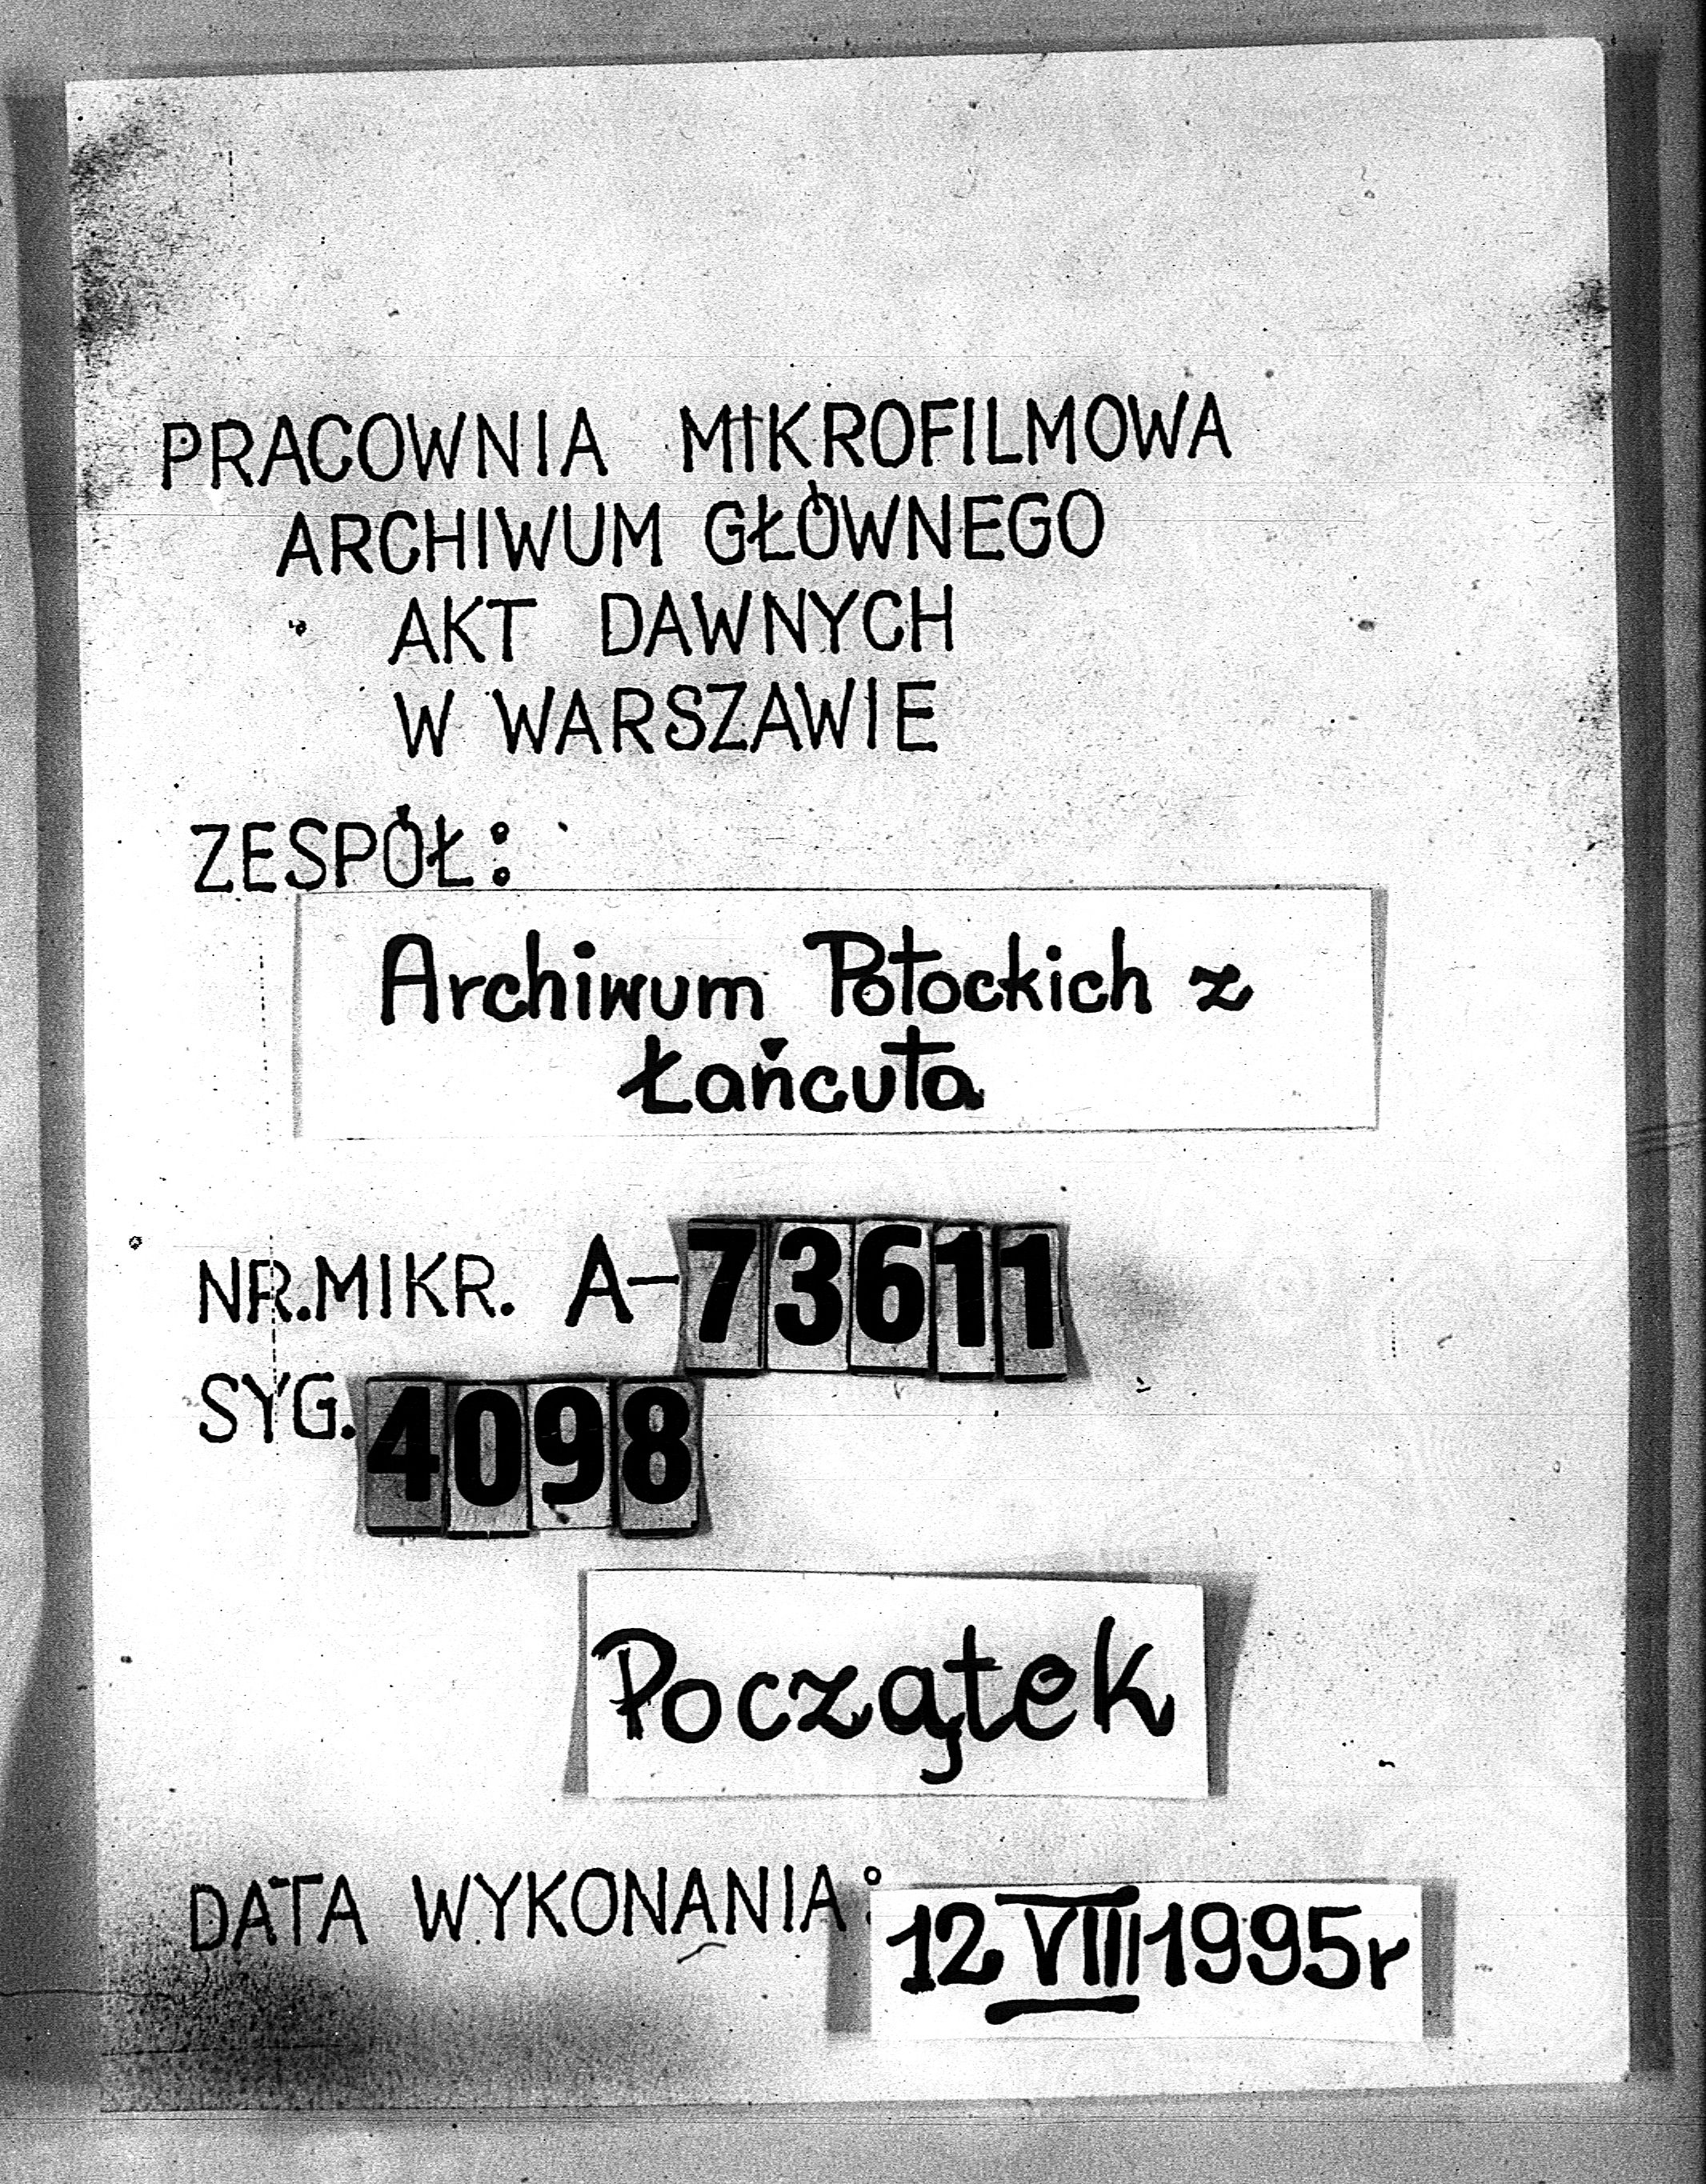 PRACOWNIA MIKROFILMOWA
ARCHIWUM GŁÓWNEGO
AKT DAWNYCH
W WARSZAWIE
ZESPÓŁ:
Archiwum Potockich z
Łańcuta
NR.MIKR. A-73611
SYG. 4098
Początek
DATA WYKONANIA:
12 VIII 1995r